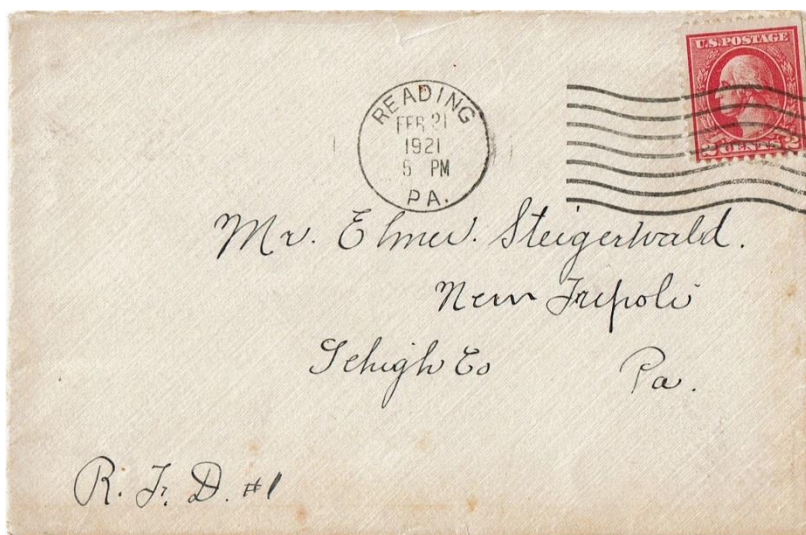 U.S. POSTAGE
2 CENTS 2
READING
FEB 21
1921
5 PM
PA.
Mr. Elmer. Steigerwald.
New Tripoli
Lehigh Co Pa.
R. F. D. #1